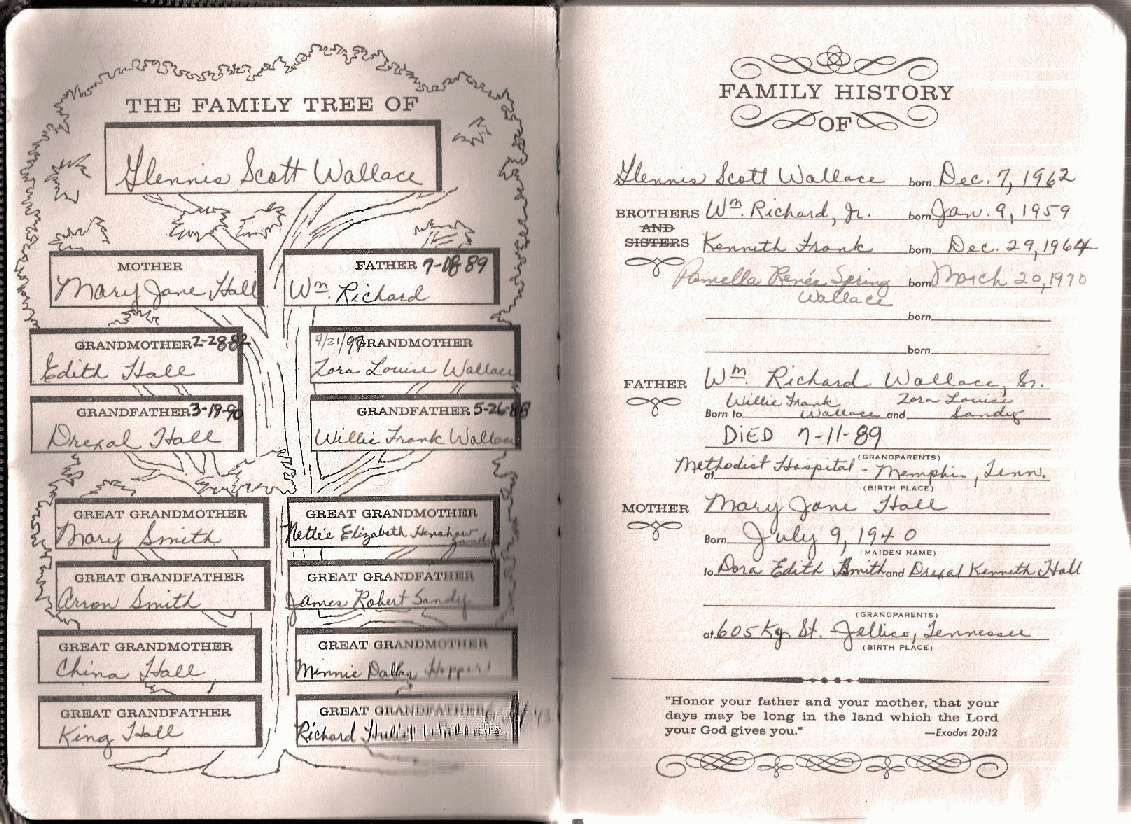 THE FAMILY TREE OF
Glennis Scott Wallace
MOTHER
Mary Jane Hall
FATHER 7-11-89
Wm. Richard
GRANDMOTHER 2-28-82
Edith Hall
4/21/97 GRANDMOTHER
Zora Louise Wallace
GRANDFATHER 3-19-90
Drexal Hall
GRANDFATHER 5-26-88
Willie Frank Wallace
GREAT GRANDMOTHER
Mary Smith
GREAT GRANDMOTHER
Nettie Elizabeth Henshaw
Sandy
GREAT GRANDFATHER
Arron Smith
GREAT GRANDFATHER
James Robert Sandy
GREAT GRANDMOTHER
China Hall
GREAT GRANDMOTHER
Minnie Dallas Hopper
GREAT GRANDFATHER
King Hall
GREAT GRANDFATHER
Richard Wallace
FAMILY HISTORY
OF
Glennis Scott Wallace born Dec. 7, 1962
BROTHERS Wm. Richard, Jr. born Jan. 9, 1959
AND
SISTERS Kenneth Frank born Dec. 29, 1964
Pamella Renée Spring born March 20, 1970
Wallace
born
born
FATHER Wm. Richard Wallace, Sr.
Willie Frank Zora Louise
Born to Wallace and Sandy
DIED 7-11-89
(GRANDPARENTS)
at Methodist Hospital - Memphis, Tenn.
(BIRTH PLACE)
MOTHER Mary Jane Hall
Born July 9, 1940
(MAIDEN NAME)
to Dora Edith Smith and Drexal Kenneth Hall
(GRANDPARENTS)
at 605 Ky. St. Jellico, Tennessee
(BIRTH PLACE)
"Honor your father and your mother, that your
days may be long in the land which the Lord
your God gives you." —Exodus 20:12